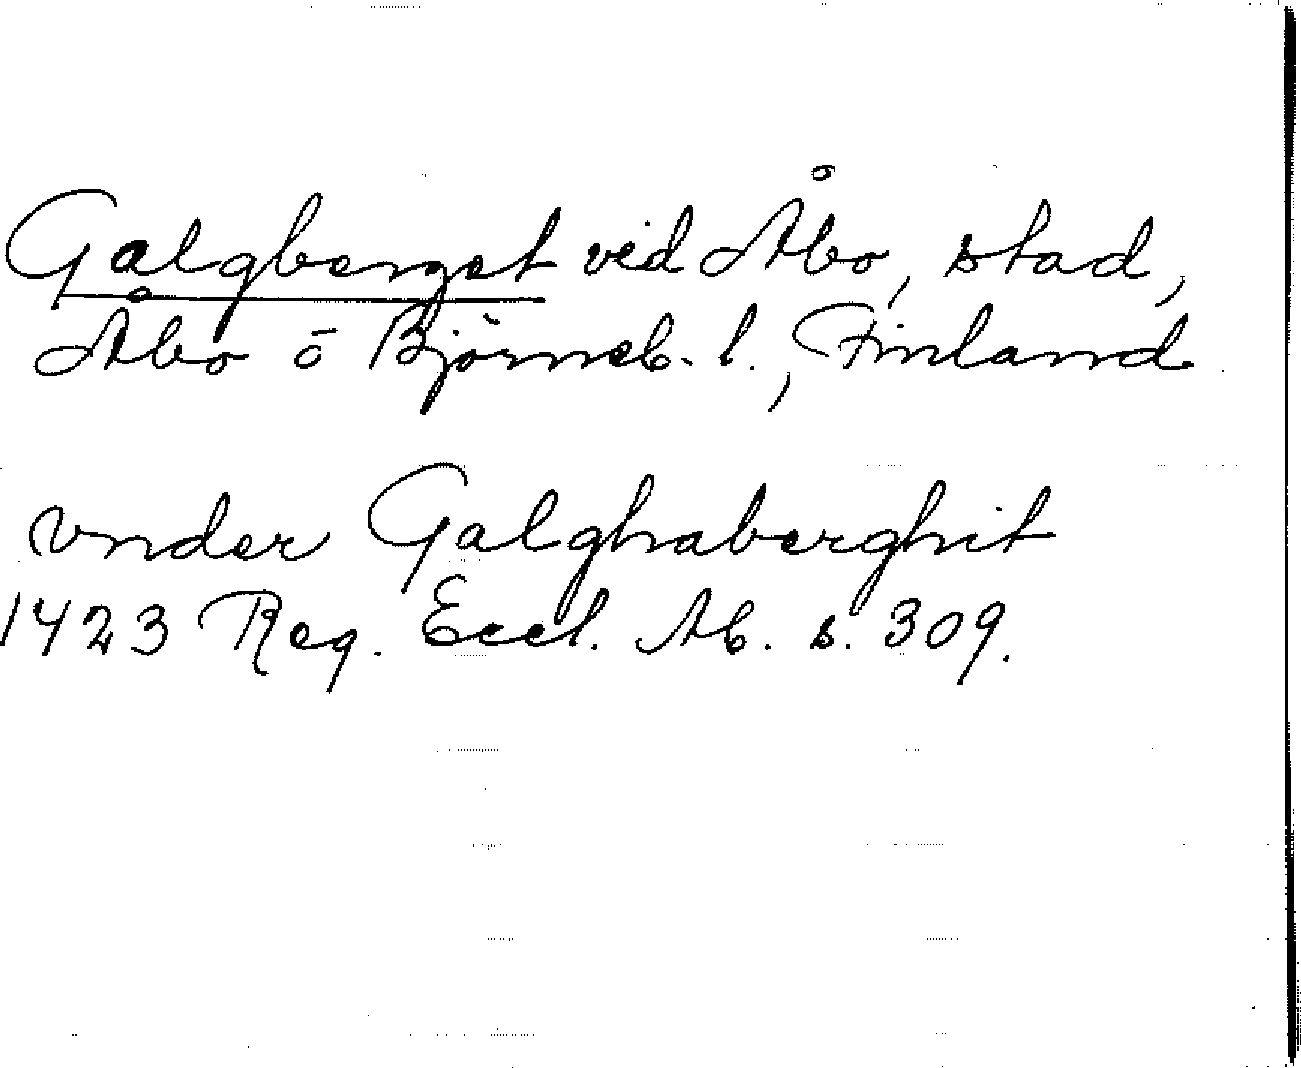 Galgberget vid Åbo, stad,
Åbo o Björneb. l., Finland
vnder Galghaberghit
1423 Reg. Eccl. Ab. s. 309.